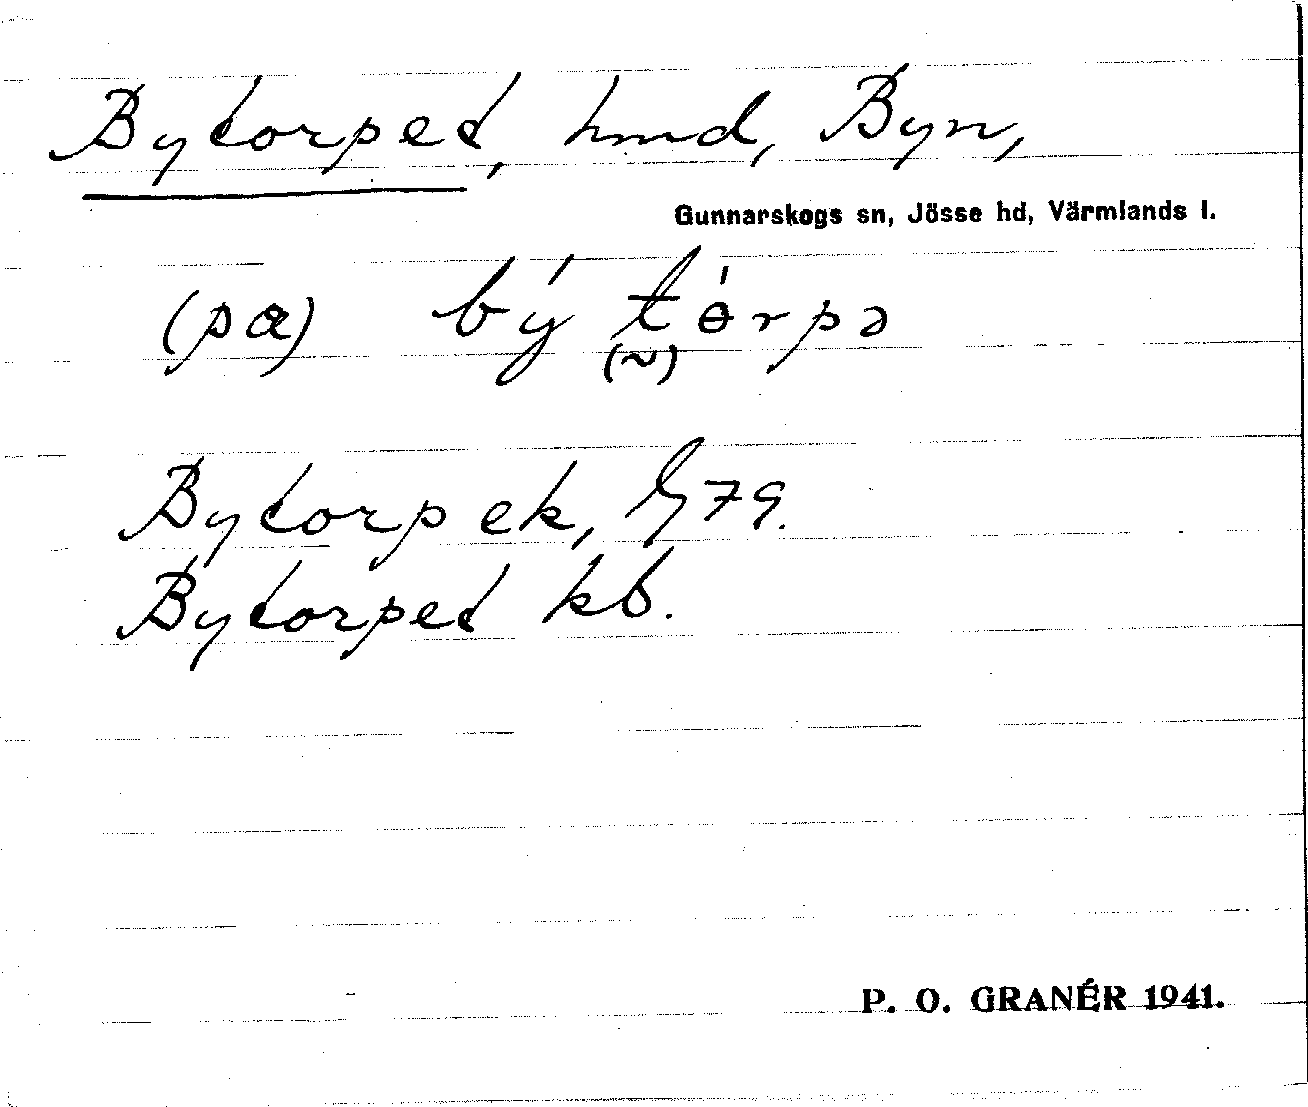 Bytorpet, hmd, Byn,
Gunnarskogs sn, Jösse hd, Värmlands l.
(pa) bý tɵ́rpə
(~)
Bytorp ek, G79.
Bytorpet kb.
P. O. GRANÉR 1941.